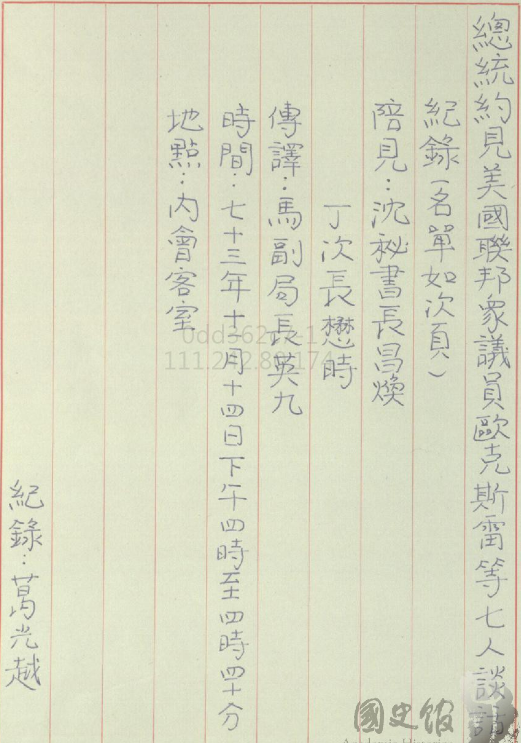 總統約見美國聯邦眾議員歐克斯雷等七人談話
紀錄(名單如次頁)
陪見:沈祕書長昌煥
丁次長懋時
傳譯:馬副局長英九
時間:七十三年十一月十四日下午四時至四時四十分
地點:內會客室
紀錄:葛光越
國史館